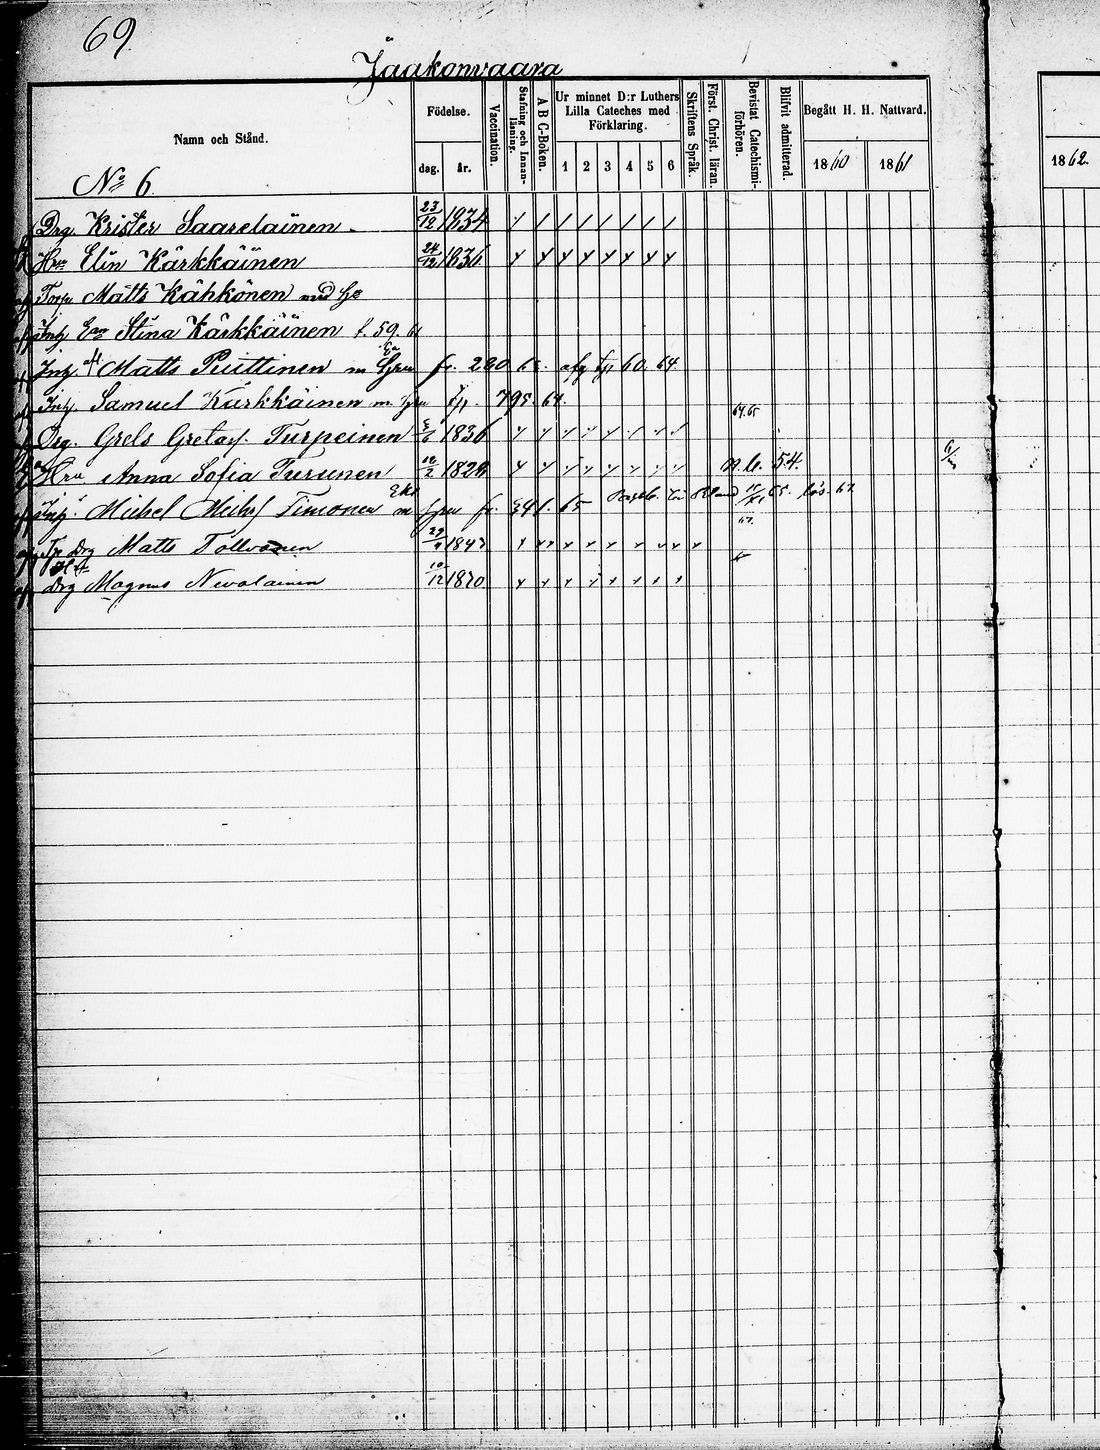 69.
Jaakonvaara
Namn och Stånd.
Födelse.
dag. år.
Vaccination.
Stafning och Innanläsning.
A B C-Boken.
Ur minnet D:r Luthers Lilla Cateches med Förklaring.
1 2 3 4 5 6
Skriftens Språk.
Först. Christ. läran.
Bevistat Catechismiförhören.
Blifvit admitterad.
Begått H. H. Nattvard.
1860 1861
1862.
No 6
Drg. Krister Saarelainen 23/12 1834
Hru Elin Kärkkäinen 24/12 1836
Torp Matts Kähkönen
Inh Stina Kärkkäinen f. 59. 61
Inh Matts Puittinen m Hru fr. 220 afg 60. 64
Inh. Samuel Kärkkäinen m 795. 64.
Drg. Grels Turpeinen 1836 64.65
Hru Anna Sofia Turunen 12/2 1829 n.b. 54.
Inh. Michel Timonen m Hru fr. 65 lös. 67
Drg Matts Tollvanen 29/9 1847 67.
Drg Magnus Nevalainen 10/12 1820